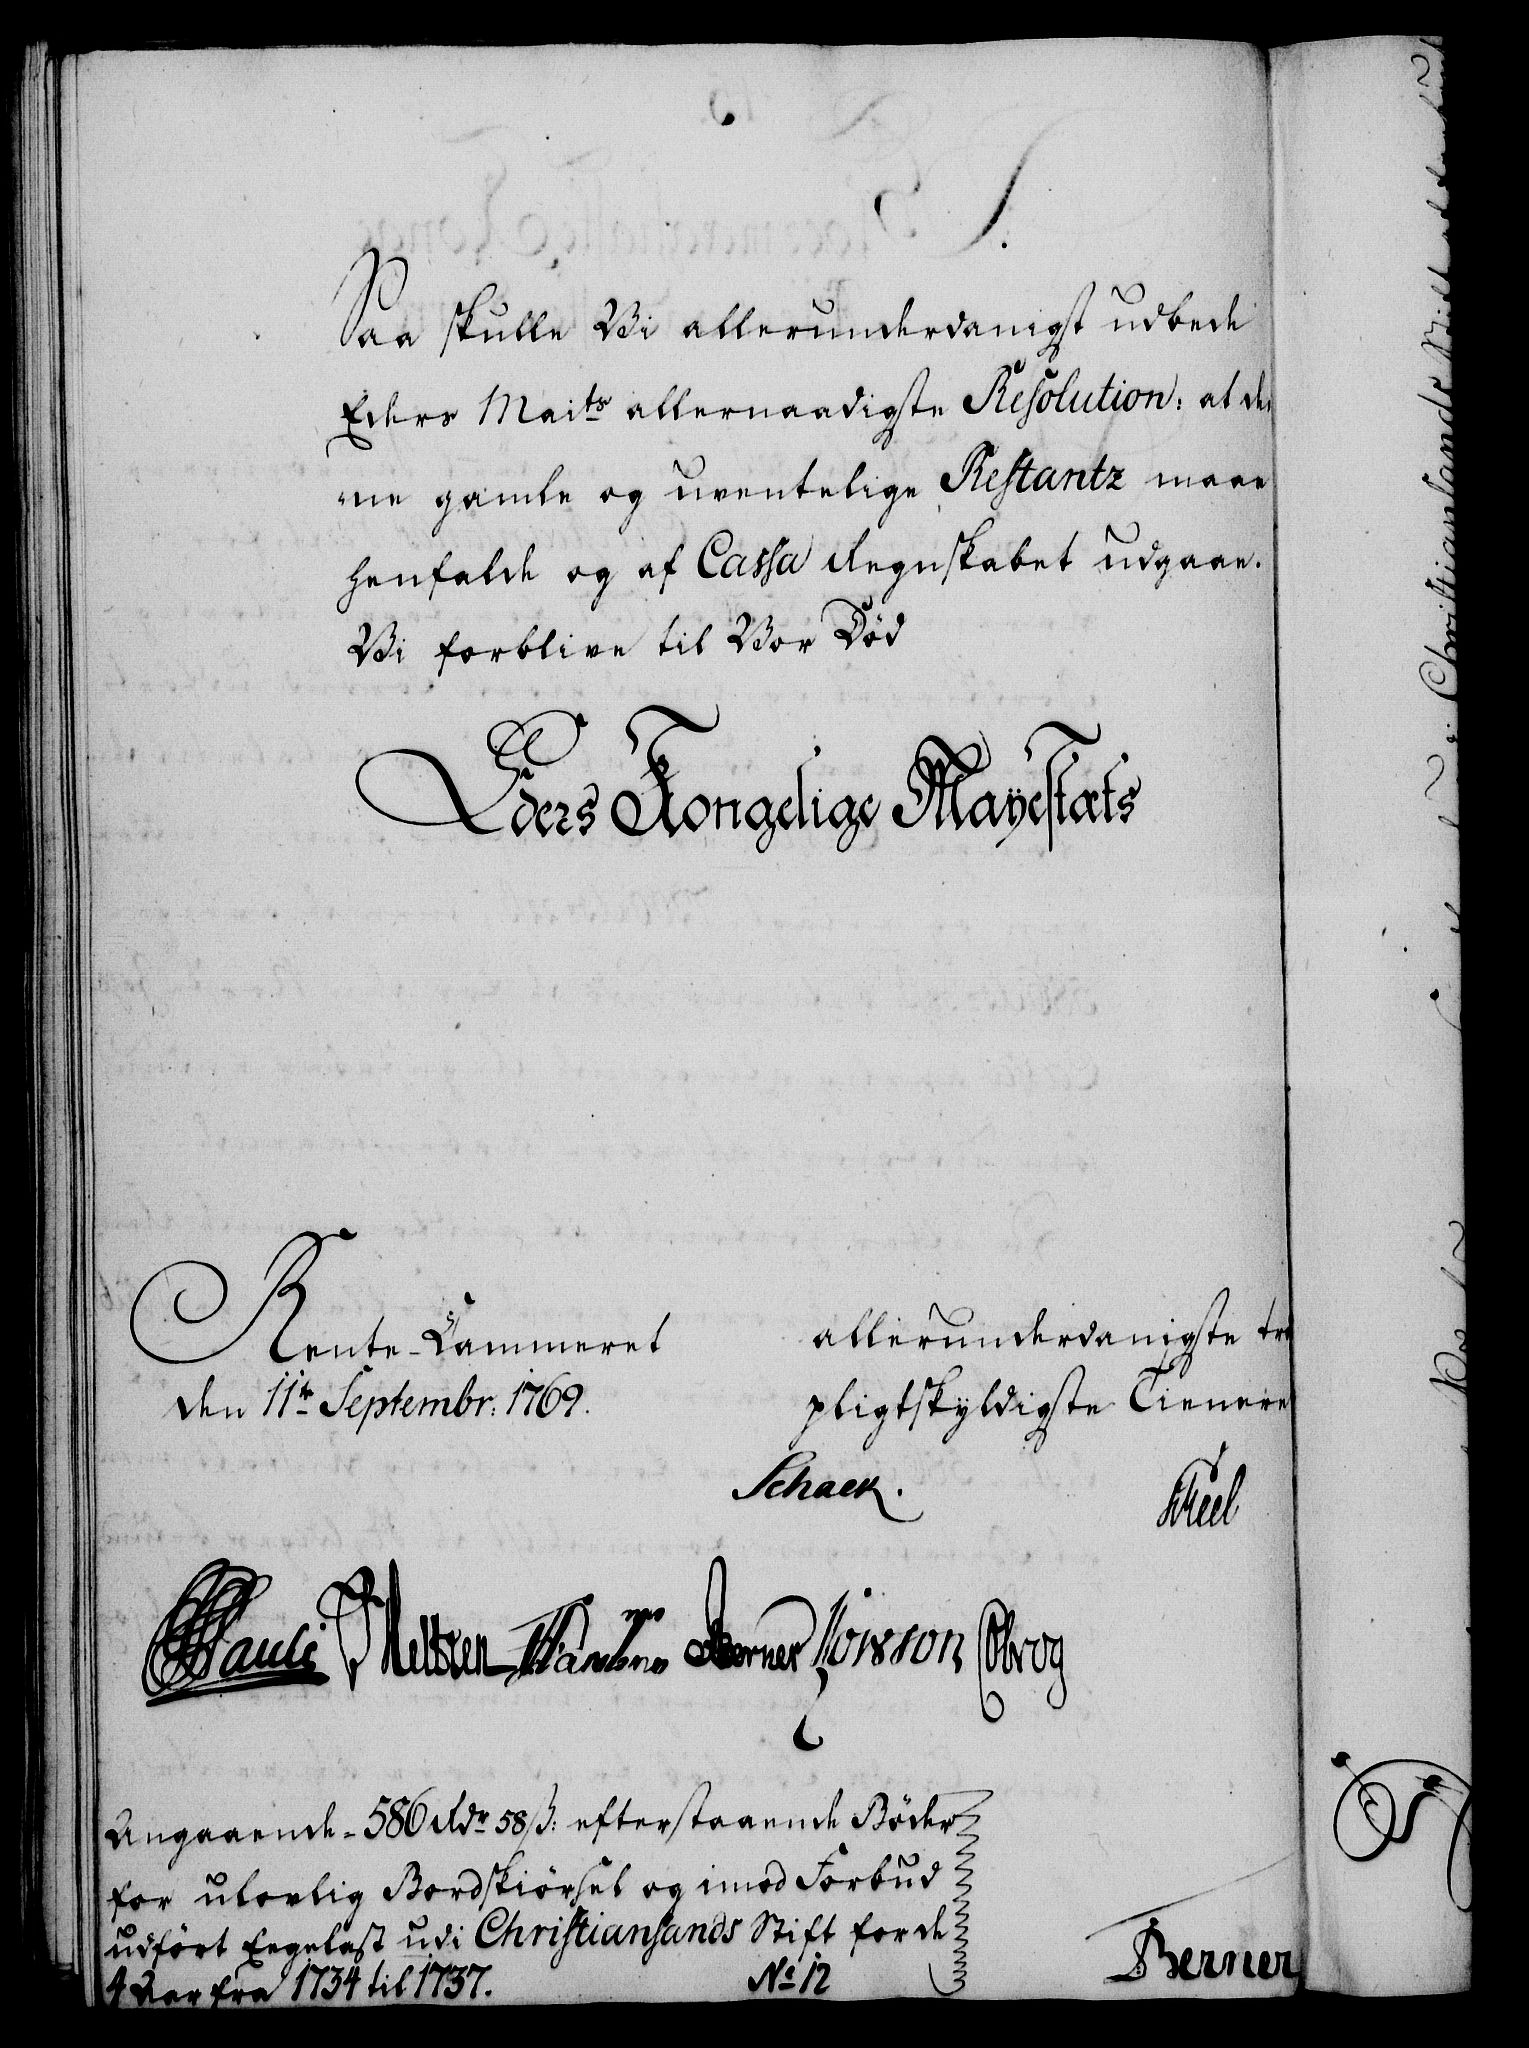 Saa skulle Vi allerunderdanigst udbede
Eders Maits allernaadigste Resolution: at den
ne gamle og uventelige Restantz maae
henfalde og af Cassa Regnskabet udgaae.
Vi forblive til Vor Död
Eders Kongelige Mayestæts
Rente-Cammeret
den 11te Septembr. 1769.
allerunderdanigste tro
pligtskyldigste Tienere
Schack.
Pauli Berner
Berner
Angaaende 586 Rdr 58 ß: efterstaaende Böder
for ulovlig Bordskiörsel og imod Forbud
udfört Eegelast udi Christiansands Stift for de
4 Aar fra 1734 til 1737.
No 12